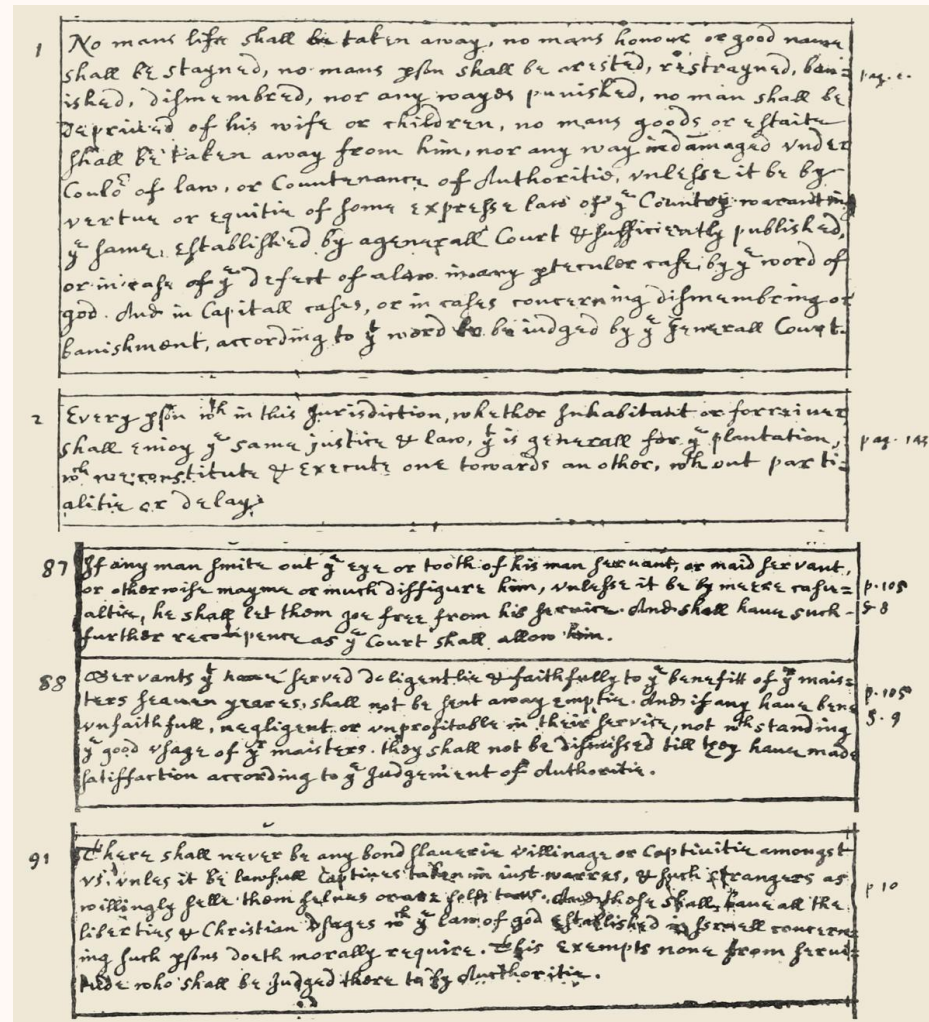 1
No mans life shall be taken away, no mans honour or good name
shall be stayned, no mans pson shall be arested, restrayned, ban=
ished, dismembred, nor any wayes punished, no man shall be
deprived of his wife or children, no mans goods or estaite
shall be taken away from him, nor any way indamaged vnder
Coulor of law, or Countenance of Authoritie, vnlesse it be by
vertue or equitie of some expresse law of ye Country waranting
ye same, established by a generall Court & sufficiently published,
or in case of ye defect of a law in any pteculer case, by ye word of
god. And in Capitall cases, or in cases concerning dismembring or
banishment, according to yt word to be iudged by ye Generall Court.
2
Every pson wth in this Jurisdiction, whether Inhabitant or forreiner
shall enioy ye same justice & law, yt is generall for ye plantation,
wch we constitute & execute one towards an other, wth out parti=
alitie or delay.
pag. 143
87
If any man smite out ye eye or tooth of his man servant, or maid servant,
or otherwise mayme or much disfigure him, vnlesse it be by meere casu=
altie, he shall let them goe free from his service. And shall have such
further recompence as ye Court shall allow him.
p. 105
§ 8
88
Servants yt have served deligentlie & faithfully to ye benefitt of yr mais=
ters seaven yeares, shall not be sent away emptie. And if any have bene
vnfaithfull, negligent or vnprofitable in their service, not wth standing
ye good vsage of yr maisters. they shall not be dismissed till they have made
satisfaction according to ye Judgement of Authoritie.
p. 105
§. 9
91
There shall never be any bond slaverie villinage or Captivitie amongst
vs. vnles it be lawfull Captives taken in iust warres, & such strangers as
willingly selle themselves or are solde to us. And these shall have all the
liberties & Christian vsages wch ye law of god established in Israell concern=
ing such psons doeth morally require. This exempts none from servi=
tude who shall be Judged there to by Authoritie.
p 10